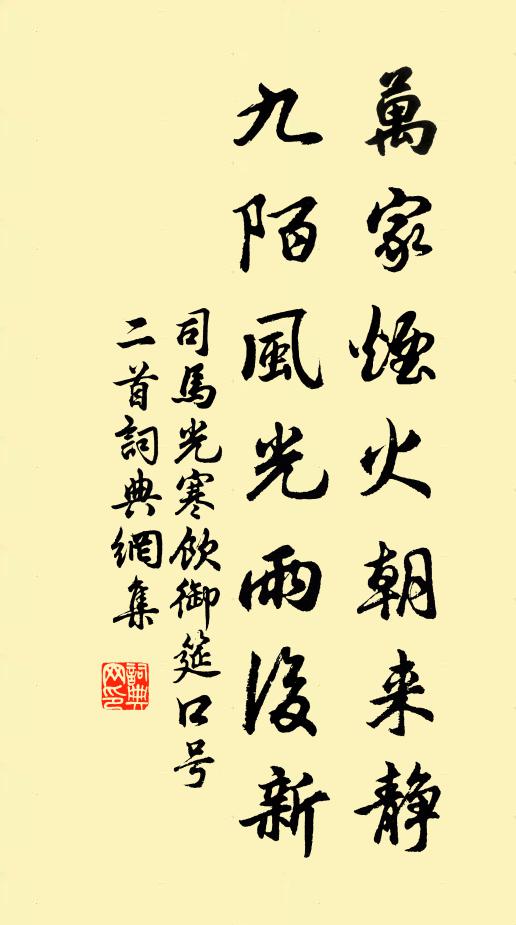 萬家煙火朝来静
九陌風光雨後新
司馬光寒飲御筵口号
二首詞典網集
詞典网印